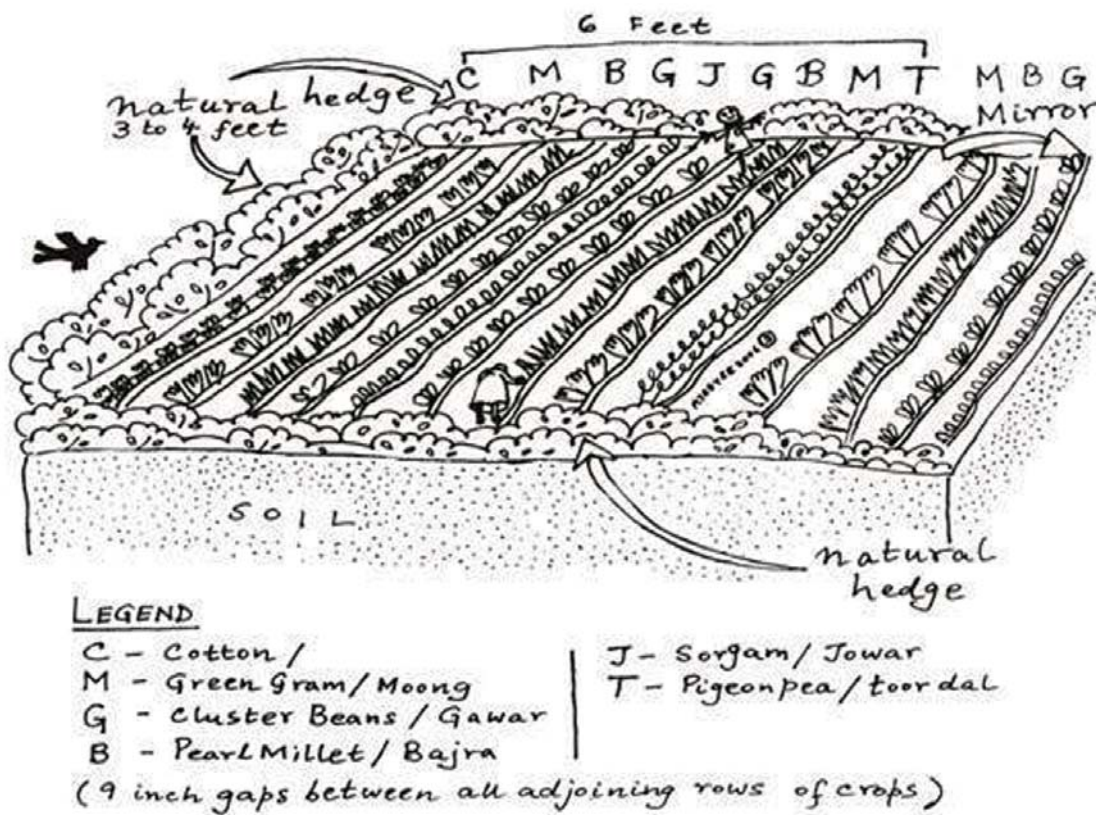 6 Feet
C M B G J G B M T M B G
Mirror
natural hedge
3 to 4 feet
SOIL
natural
hedge
LEGEND
C - Cotton /
M - Green Gram / Moong
G - Cluster Beans / Gawar
B - Pearl Millet / Bajra
J - Sorgam / Jowar
T - Pigeonpea / toor dal
(9 inch gaps between all adjoining rows of crops)